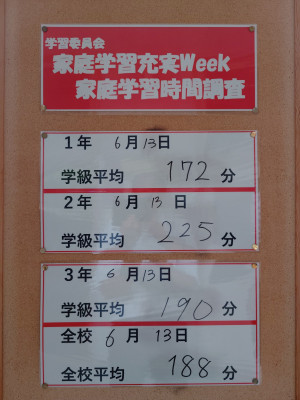 学習委員会
家庭学習充実Week
家庭学習時間調査
1年 6月13日
学級平均 172分
2年 6月13日
学級平均 225分
3年 6月13日
学級平均 190分
全校 6月13日
全校平均 188分